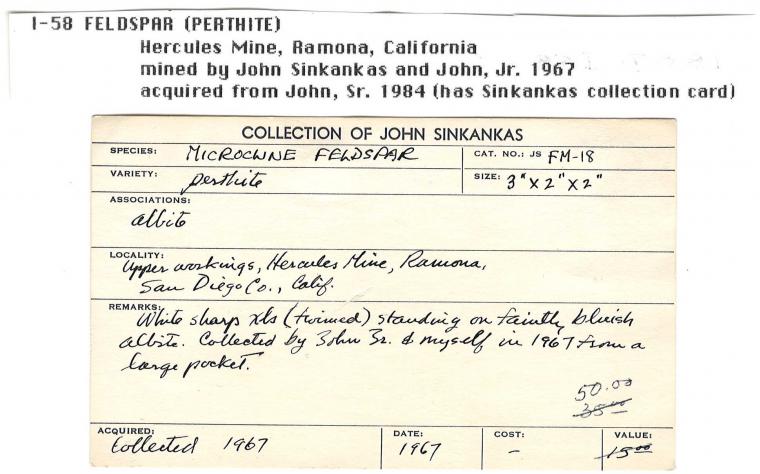 I-58 FELDSPAR (PERTHITE)
Hercules Mine, Ramona, California
mined by John Sinkankas and John, Jr. 1967
acquired from John, Sr. 1984 (has Sinkankas collection card)
COLLECTION OF JOHN SINKANKAS
SPECIES: MICROCLINE FELDSPAR
CAT. NO.: JS FM-18
VARIETY: perthite
SIZE: 3" X 2" X 2"
ASSOCIATIONS:
albite
LOCALITY:
Upper workings, Hercules Mine, Ramona,
San Diego Co., Calif.
REMARKS:
White sharp xls (twinned) standing on faintly bluish
albite. Collected by John Jr. & myself in 1967 from a
large pocket.
50.00
35.00
ACQUIRED: Collected 1967
DATE: 1967
COST: -
VALUE: 15.00